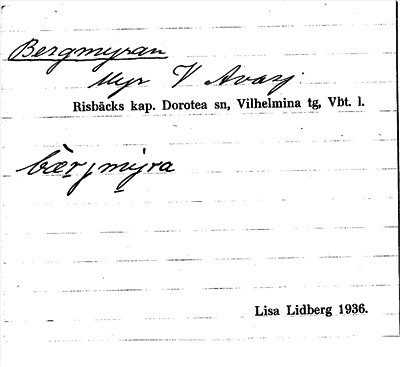 Bergmyran
Myr V Avasj.
Risbäcks kap. Dorotea sn, Vilhelmina tg, Vbt. l.
bær̀jmy̱ra
Lisa Lidberg 1936.